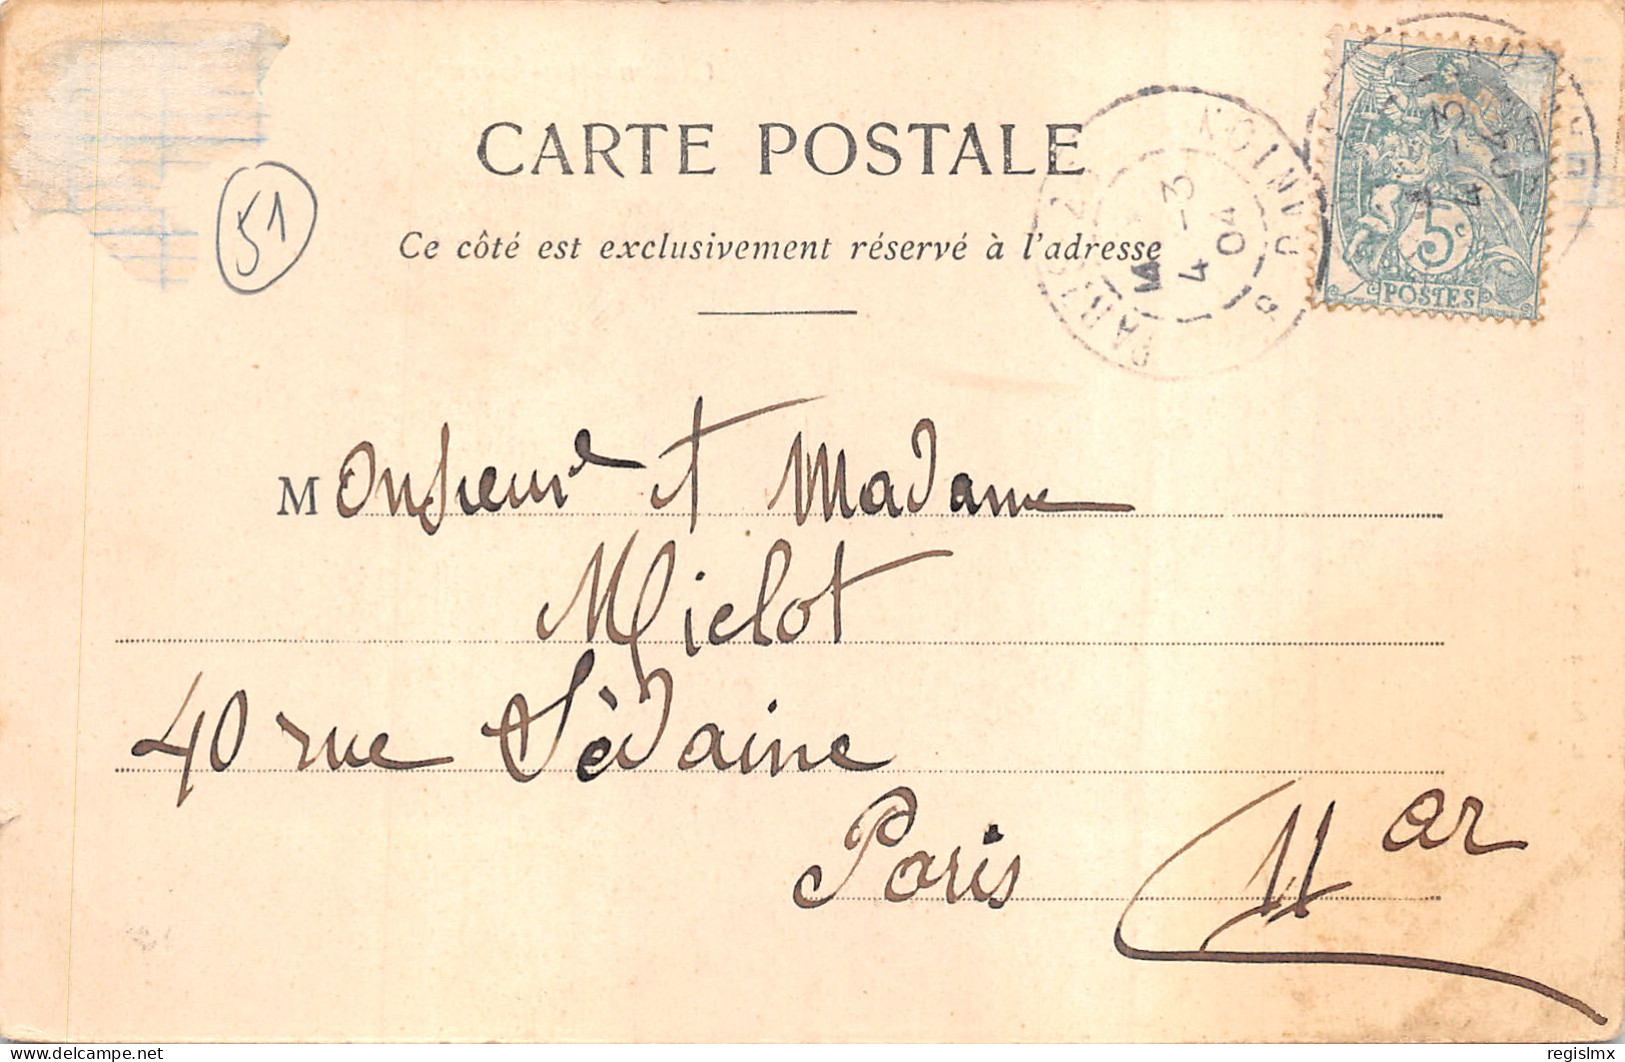 CARTE POSTALE
51
Ce côté est exclusivement réservé à l'adresse
4 -3
04
5c
POSTES
Monsieur et Madame
Mielot
40 rue Sèdaine
Paris 11 ar
delcampe.net
regislmx